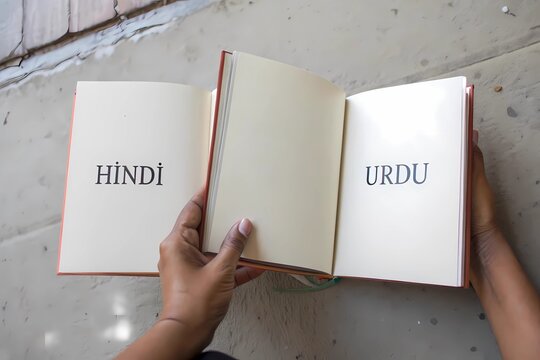 HİNDİ
URDU